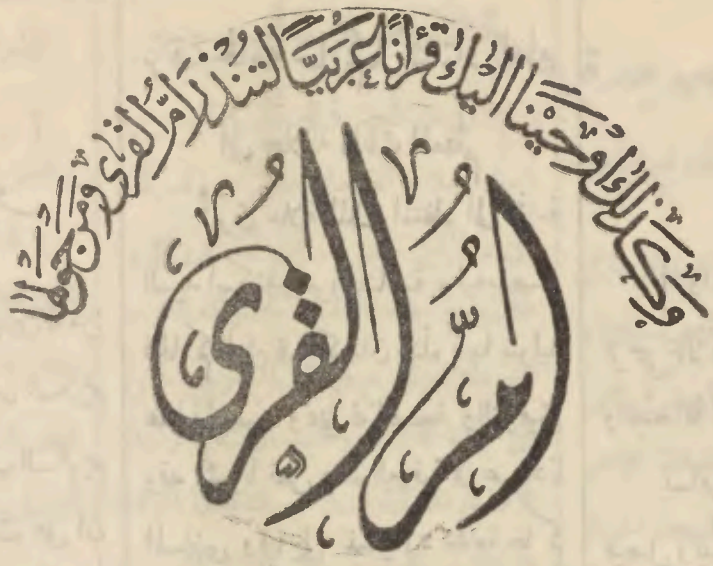 وَكَذَٰلِكَ أَوْحَيْنَا إِلَيْكَ قُرْآنًا عَرَبِيًّا لِتُنْذِرَ أُمَّ الْقُرَىٰ وَمَنْ حَوْلَهَا
أُمُّ الْقُرَىٰ